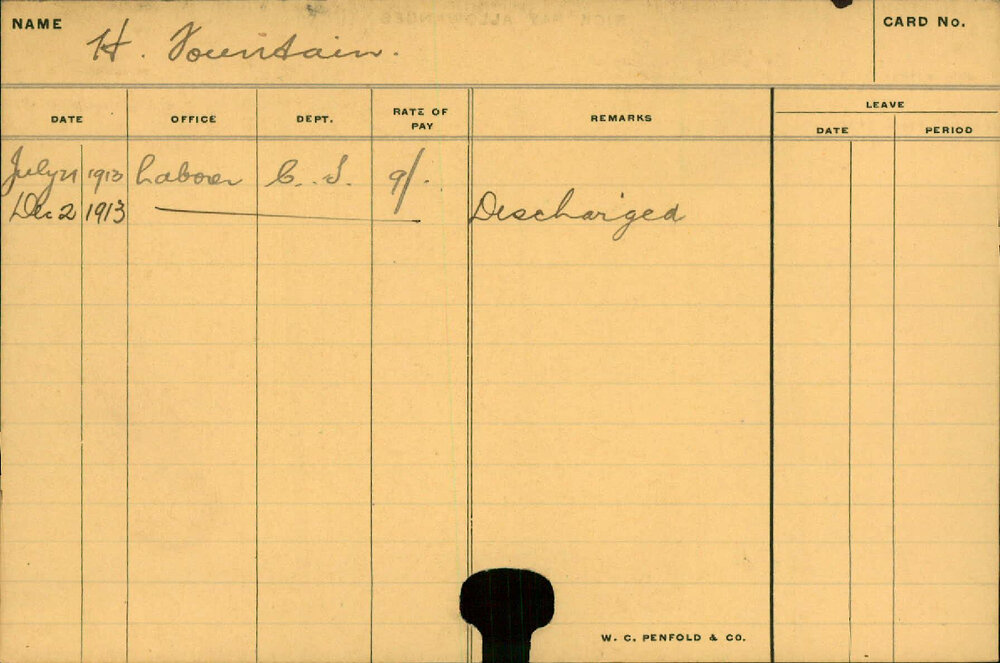 NAME H. Fountain. CARD No.
LEAVE
DATE OFFICE DEPT. RATE OF PAY REMARKS DATE PERIOD
July 21 1913 Laborer C. S. 9/-
Dec 2 1913 Discharged
W. C. PENFOLD & CO.